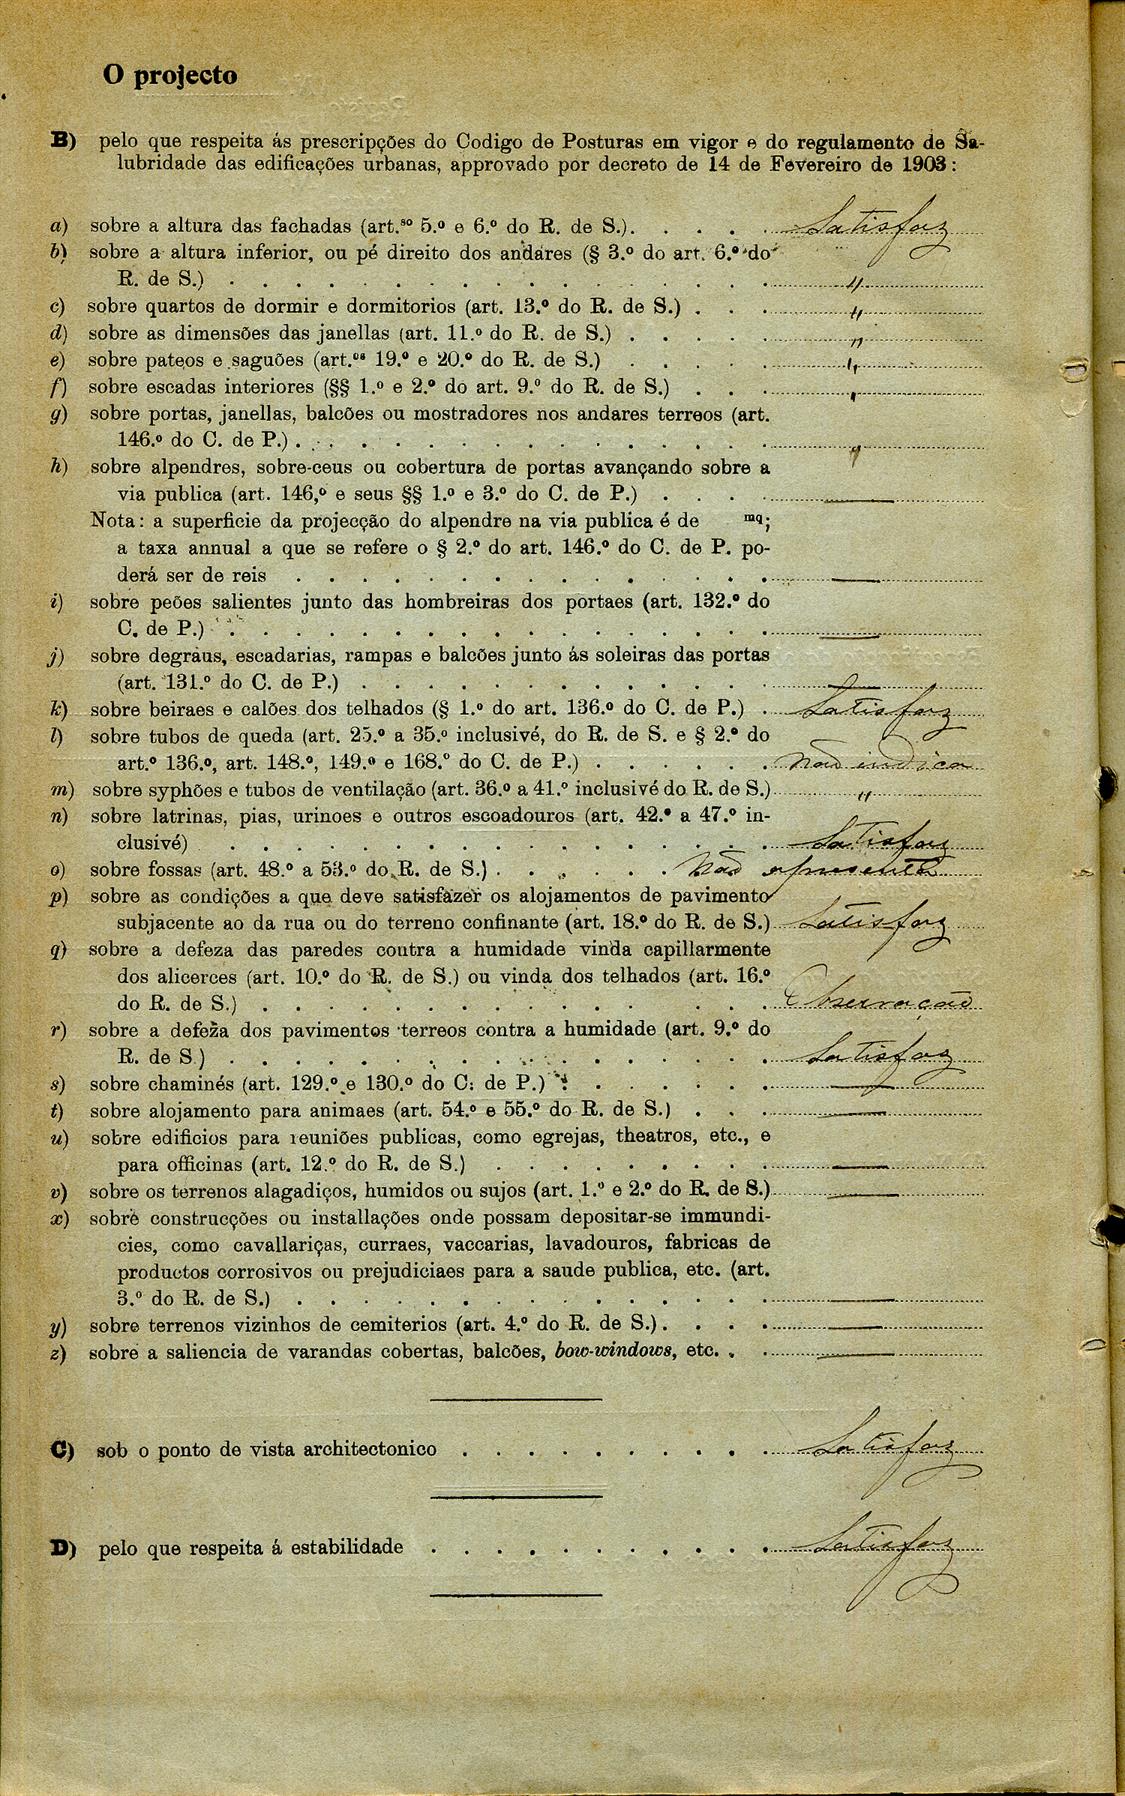 O projecto
B) pelo que respeita ás prescripções do Codigo de Posturas em vigor e do regulamento de Sa-
lubridade das edificações urbanas, approvado por decreto de 14 de Fevereiro de 1903:
a) sobre a altura das fachadas (art.ˢᵒ 5.º e 6.º do R. de S.). . . . . Satisfaz
b) sobre a altura inferior, ou pé direito dos andares (§ 3.º do art. 6.º do
R. de S.) . . . . . . . . . . . . . . . . . "
c) sobre quartos de dormir e dormitorios (art. 13.º do R. de S.) . . . "
d) sobre as dimensões das janellas (art. 11.º do R. de S.) . . . . . "
e) sobre pateos e saguões (art.ᵒˢ 19.º e 20.º do R. de S.) . . . . . "
f) sobre escadas interiores (§§ 1.º e 2.º do art. 9.º do R. de S.) . . . "
g) sobre portas, janellas, balcões ou mostradores nos andares terreos (art.
146.º do C. de P.) . . . . . . . . . . . . . . "
h) sobre alpendres, sobre-ceus ou cobertura de portas avançando sobre a
via publica (art. 146,º e seus §§ 1.º e 3.º do C. de P.) . . . . —
Nota: a superficie da projecção do alpendre na via publica é de ᵐᑫ;
a taxa annual a que se refere o § 2.º do art. 146.º do C. de P. po-
derá ser de reis . . . . . . . . . . . . . . . —
i) sobre peões salientes junto das hombreiras dos portaes (art. 132.º do
C. de P.) . . . . . . . . . . . . . . . . . —
j) sobre degraus, escadarias, rampas e balcões junto ás soleiras das portas
(art. 131.º do C. de P.) . . . . . . . . . . . . . —
k) sobre beiraes e calões dos telhados (§ 1.º do art. 136.º do C. de P.) . Satisfaz
l) sobre tubos de queda (art. 25.º a 35.º inclusivé, do R. de S. e § 2.º do
art.º 136.º, art. 148.º, 149.º e 168.º do C. de P.) . . . . . . Não indica
m) sobre syphões e tubos de ventilação (art. 36.º a 41.º inclusivé do R. de S.) "
n) sobre latrinas, pias, urinoes e outros escoadouros (art. 42.º a 47.º in-
clusivé) . . . . . . . . . . . . . . . . . Satisfaz
o) sobre fossas (art. 48.º a 53.º do R. de S.) . . . . . . Não apresenta
p) sobre as condições a que deve satisfazer os alojamentos de pavimento
subjacente ao da rua ou do terreno confinante (art. 18.º do R. de S.) Satisfaz
q) sobre a defeza das paredes contra a humidade vinda capillarmente
dos alicerces (art. 10.º do R. de S.) ou vinda dos telhados (art. 16.º
do R. de S.) . . . . . . . . . . . . . . . . Observação
r) sobre a defeza dos pavimentos terreos contra a humidade (art. 9.º do
R. de S) . . . . . . . . . . . . . . . . . Satisfaz
s) sobre chaminés (art. 129.º e 130.º do C: de P.) . . . . . . . —
t) sobre alojamento para animaes (art. 54.º e 55.º do R. de S.) . . . —
u) sobre edificios para reuniões publicas, como egrejas, theatros, etc., e
para officinas (art. 12.º do R. de S.) . . . . . . . . . —
v) sobre os terrenos alagadiços, humidos ou sujos (art. 1.º e 2.º do R. de S.) —
x) sobre construcções ou installações onde possam depositar-se immundi-
cies, como cavallariças, curraes, vaccarias, lavadouros, fabricas de
productos corrosivos ou prejudiciaes para a saude publica, etc. (art.
3.º do R. de S.) . . . . . . . . . . . . . . . —
y) sobre terrenos vizinhos de cemiterios (art. 4.º do R. de S.). . . . . —
z) sobre a saliencia de varandas cobertas, balcões, bow-windows, etc. . . —
C) sob o ponto de vista architectonico . . . . . . . . . . Satisfaz
D) pelo que respeita á estabilidade . . . . . . . . . . . Satisfaz